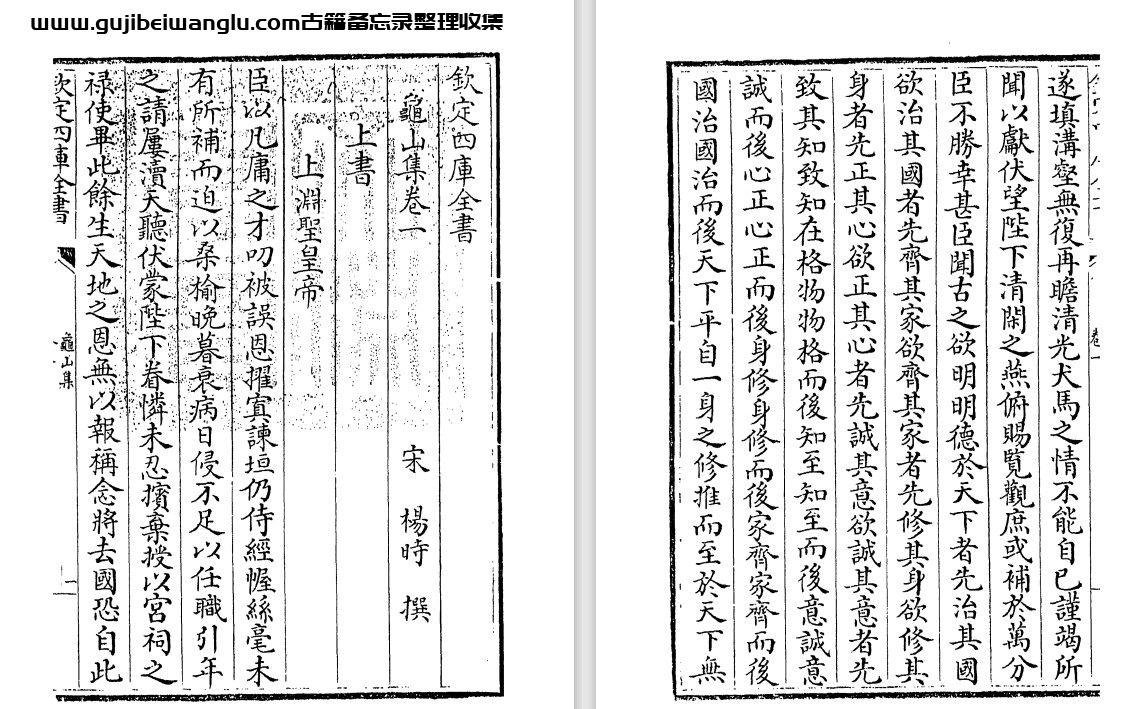 www.gujibeiwanglu.com古籍备忘录整理收集
欽定四庫全書
龜山集卷一
宋 楊時 撰
上書
上淵聖皇帝
臣以凡庸之才叨被誤恩擢寘諫垣仍侍經幄絲毫未
有所補而迫以桑揄晚暮衰病日侵不足以任職引年
之請屢瀆天聽伏蒙陛下眷憐未忍擯棄授以宮祠之
禄使畢此餘生天地之恩無以報稱念將去國恐自此
欽定四庫全書
龜山集
一
遂填溝壑無復再瞻清光犬馬之情不能自已謹竭所
聞以獻伏望陛下清閑之燕俯賜覽觀庶或補於萬分
臣不勝幸甚臣聞古之欲明明德於天下者先治其國
欲治其國者先齊其家欲齊其家者先修其身欲修其
身者先正其心欲正其心者先誠其意欲誠其意者先
致其知致知在格物物格而後知至知至而後意誠意
誠而後心正心正而後身修身修而後家齊家齊而後
國治國治而後天下平自一身之修推而至於天下無